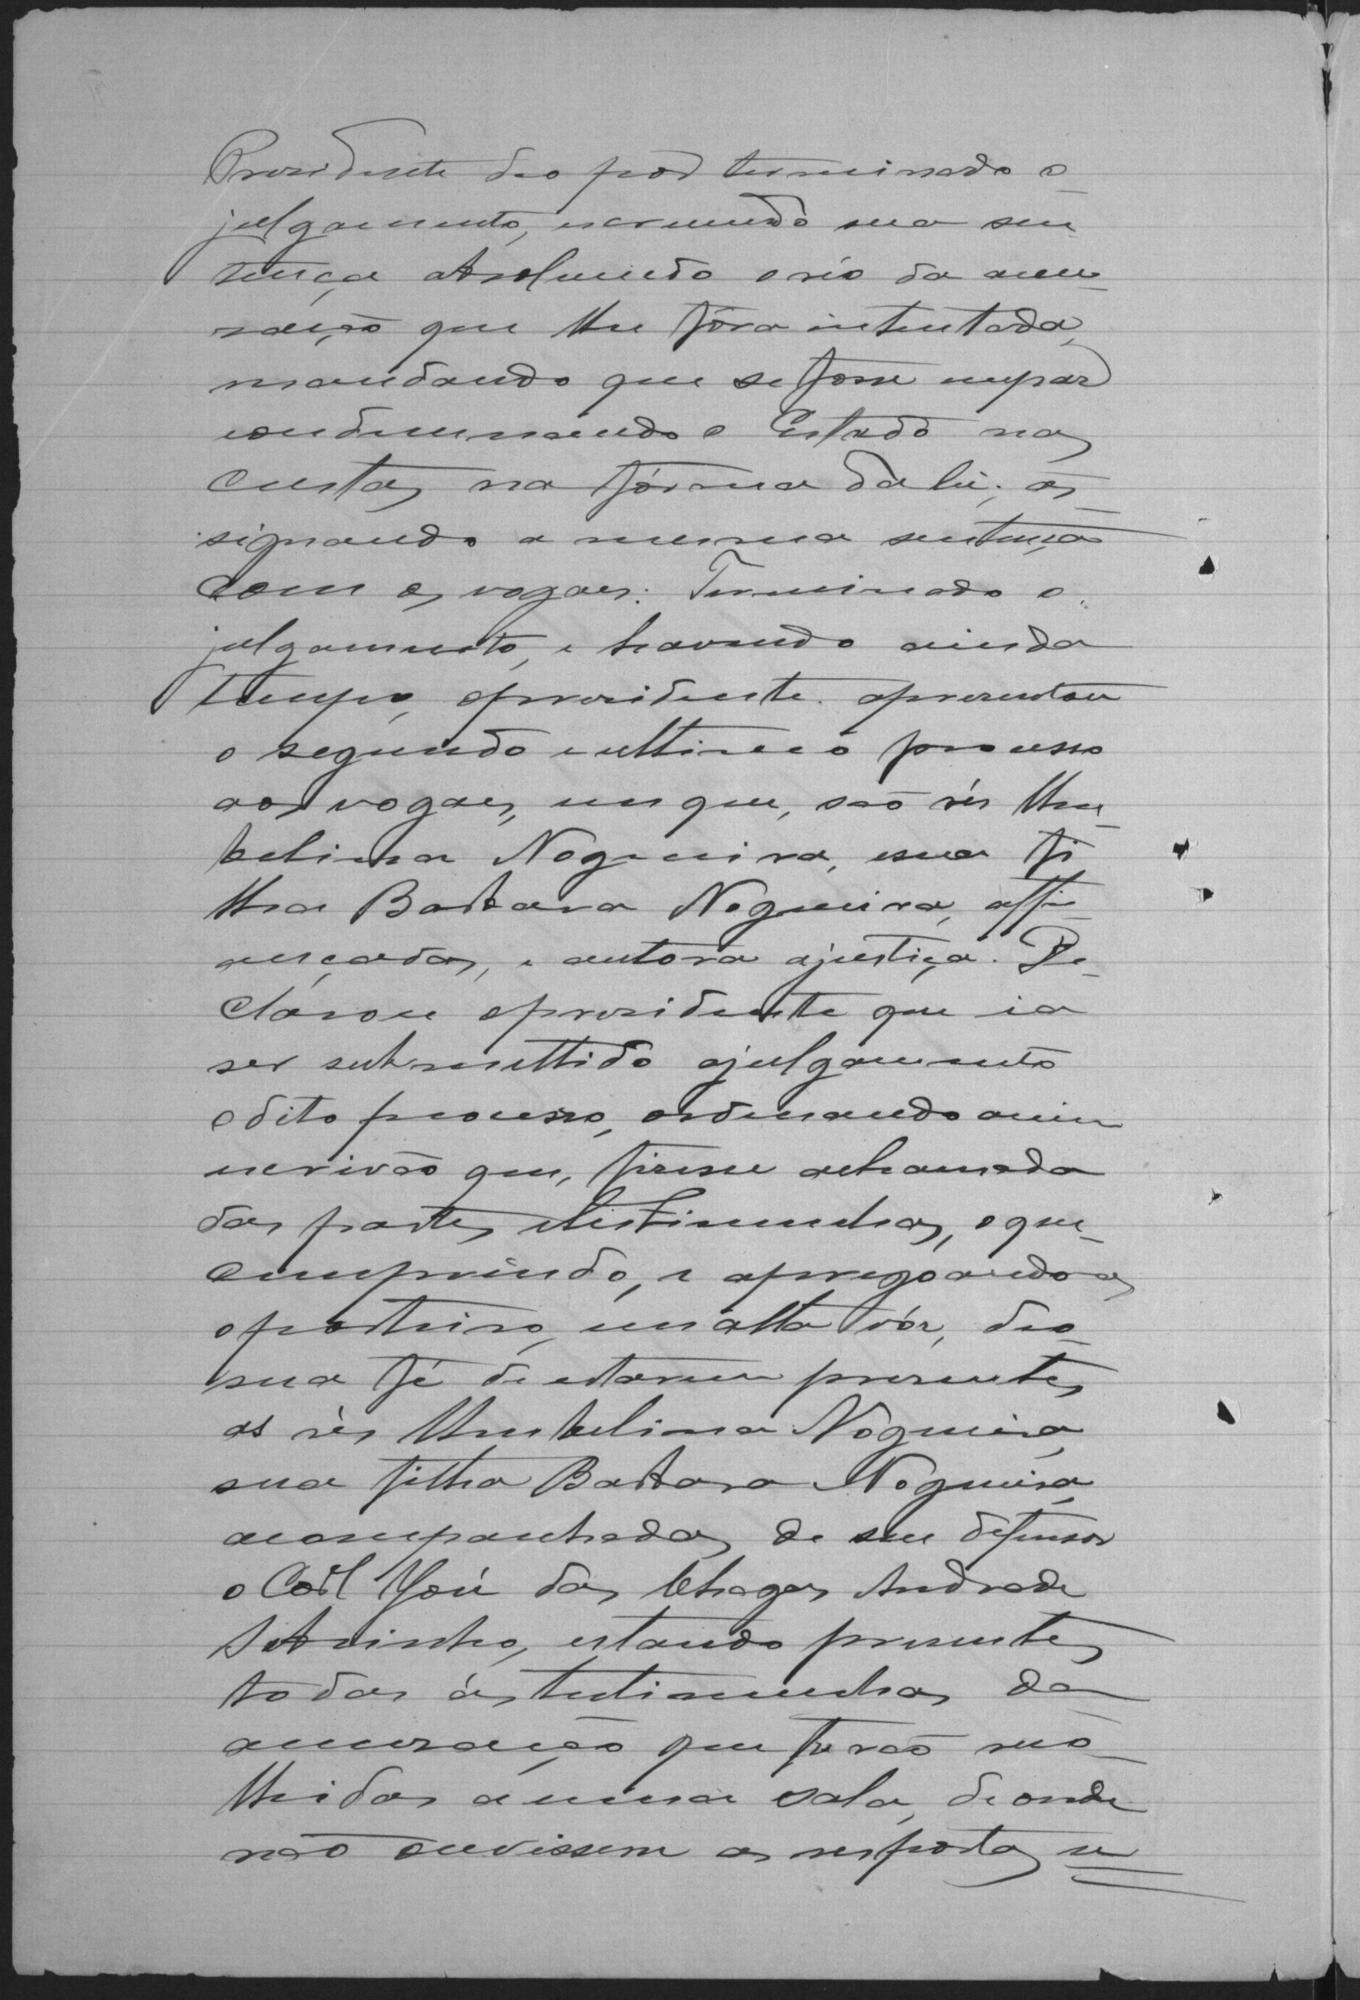 Presidente deo por terminado o
julgamento, escrevendo sua sen
tença absolvendo o réo da accu-
sação que lhe fôra intentada,
mandando que se fosse em paz
condemnando o Estado nas
custas na fórma da lei; as-
signando a mesma sentença
com os vogaes. Terminado o
julgamento, e havendo ainda
tempo, o presidente apresentou
o segundo e ultimo processo
aos vogaes, em que, são rés Um-
belina Nogueira, e sua fi
lha Barbara Nogueira, affi-
ançadas, e autora a justiça. De-
clarou o presidente que ia
ser submettido a julgamento
o dito processo, ordenando a mim
escrivão que, fizesse a chamada
das partes e testimunhas, o que
cumprindo, e apregoando as
o porteiro, em alta vóz, deo
sua fé de estarem presentes
as rés Umbelina Nogueira,
sua filha Barbara Nogueira
acompanhadas de seu defensor
o Cor.el José das Chagas Andrade
Sobrinho, estando presentes
todas ás testimunhas da
accusação que forão reco-
lhidas a uma sala, de onde
não ouvissem as respostas u